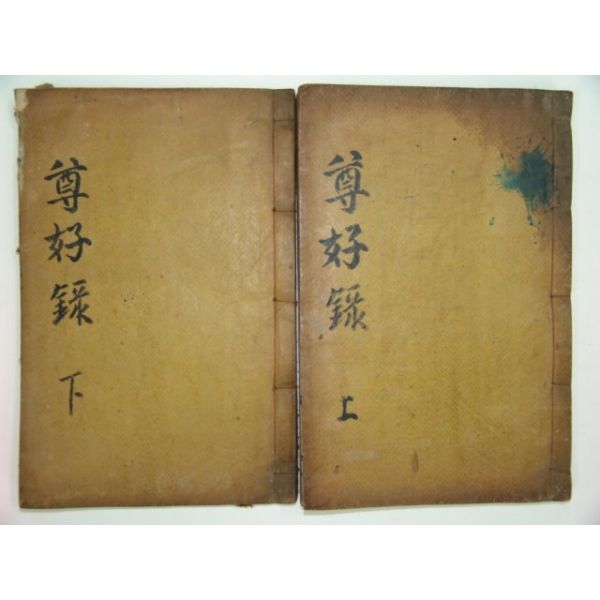 尊好錄 上
尊好錄 下